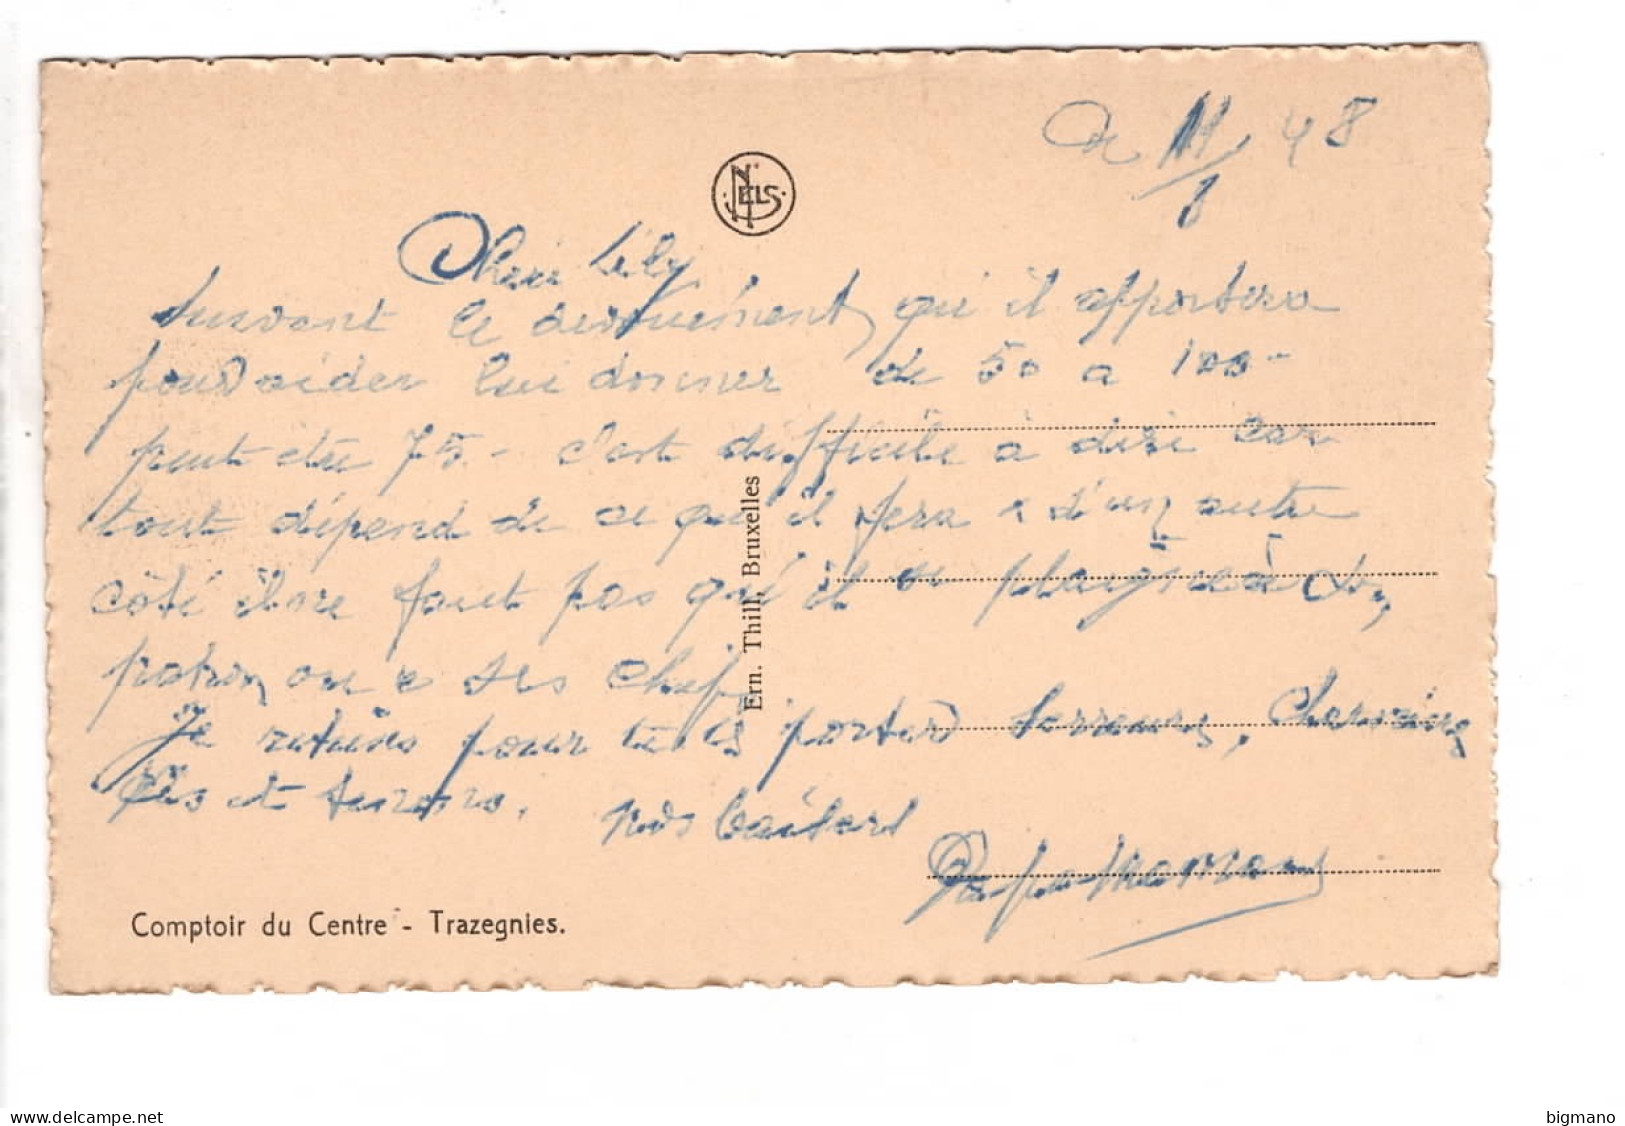 Le 11/8 48
NELS
Cherie Lily,
Suivant le devouément, qu'il apportera
pour aider lui donner de 50 a 100-
peut etre 75.- C'est difficile à dire car
tout dépend de ce qu'il fera & d'un autre
côté il ne faut pas qu'il se plaigne à son
patron ou a ses chefs.
Je retiens pour porter
et Nos baisers
Papa Maman
Ern. Thill, Bruxelles
Comptoir du Centre - Trazegnies.
delcampe.net
bigmano